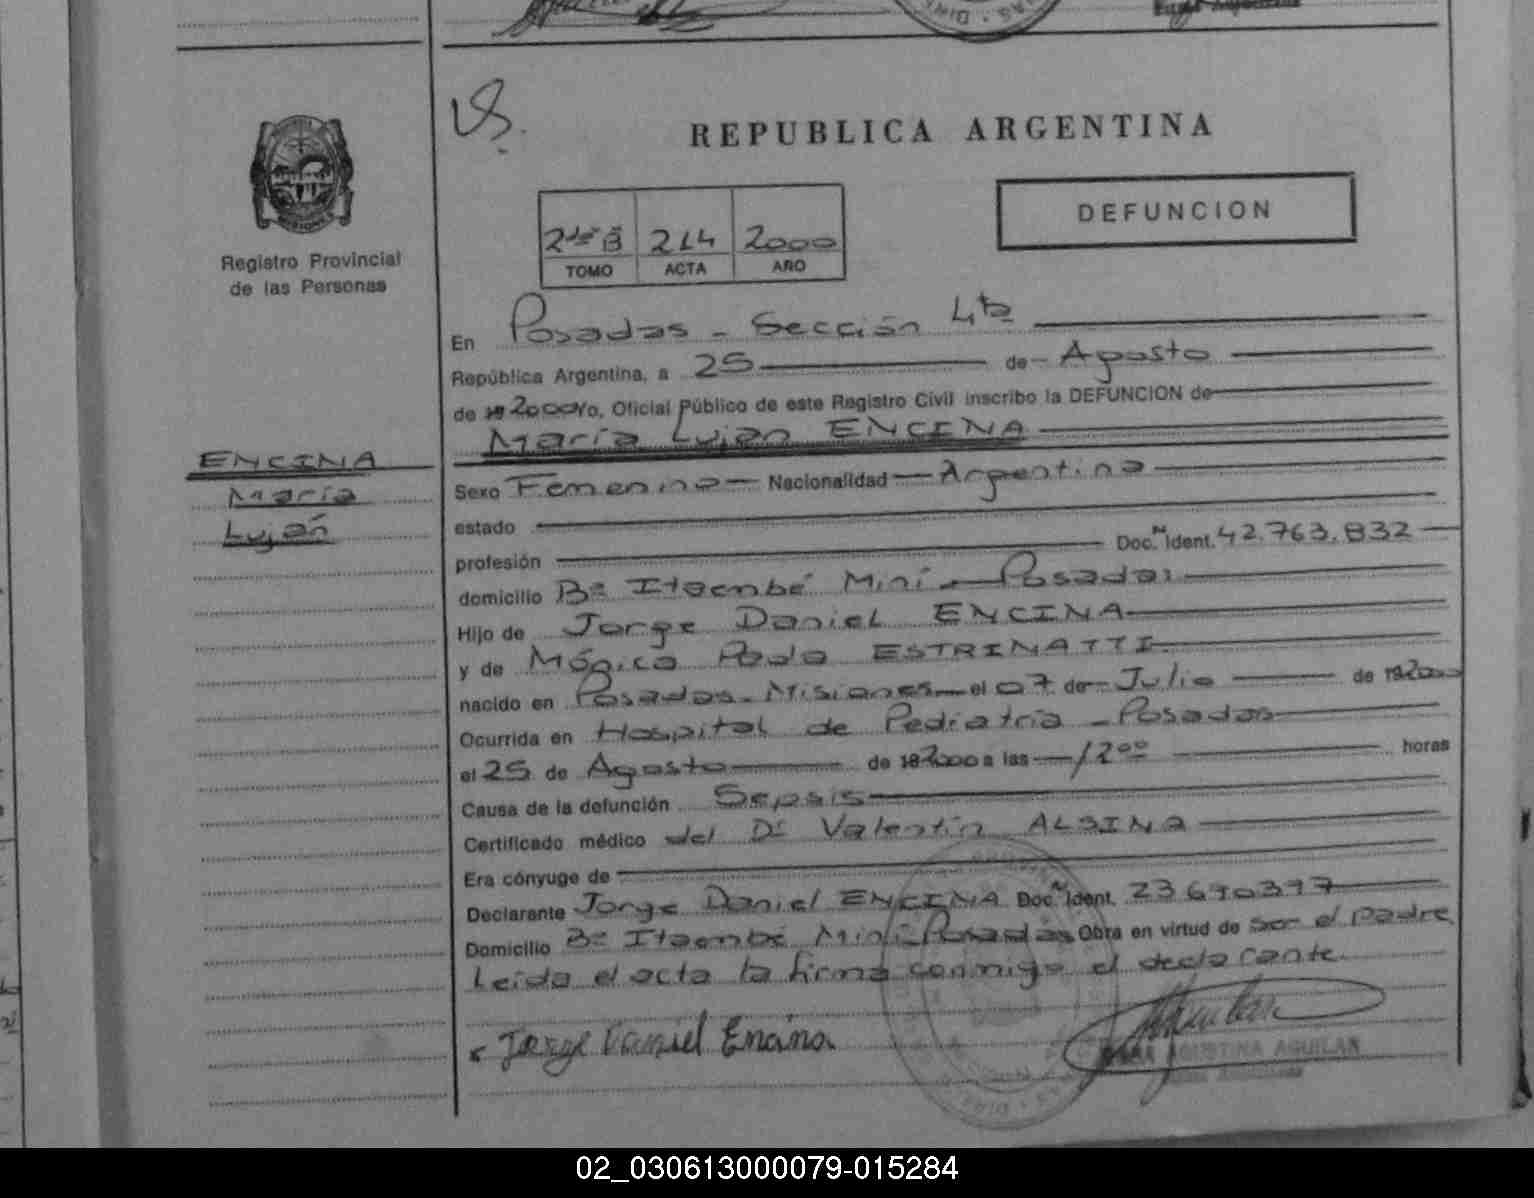 REPUBLICA ARGENTINA
DEFUNCION
2do B 214 2000
TOMO ACTA AÑO
Registro Provincial
de las Personas
En Posadas - Sección 4ta
República Argentina, a 25 de Agosto
de 2000 Yo, Oficial Público de este Registro Civil inscribo la DEFUNCION de
María Luján ENCINA
ENCINA
María
Luján
Sexo Femenino Nacionalidad Argentina
estado
profesión Doc. Ident. 42.763.832
domicilio Bº Itaembé Miní - Posadas
Hijo de Jorge Daniel ENCINA
y de Mónica ESTRINATTI
nacido en Posadas - Misiones el 07 de Julio de 192000
Ocurrida en Hospital de Pediatría - Posadas
el 25 de Agosto de 192000 a las 12 00 horas
Causa de la defunción Sepsis
Certificado médico del Dr Valentín ALSINA
Era cónyuge de
Declarante Jorge Daniel ENCINA Doc. Ident.
Domicilio Bº Itaembé Miní - Posadas Obra en virtud de ser el padre
Leída el acta la firma conmigo el declarante.
Jorge Daniel Encina
AGUSTINA AGUILAR
02_030613000079-015284